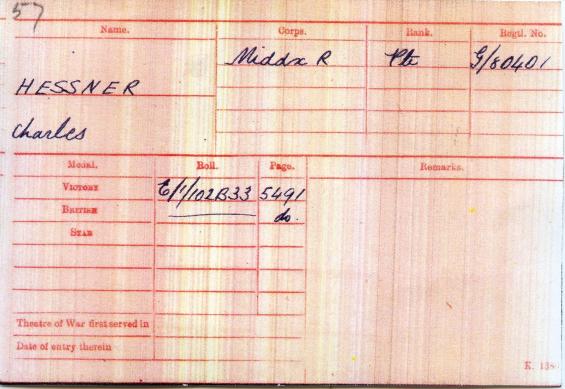 57
Name. Corps. Rank. Regtl. No.
Middx R Pte G/80401
HESSNER
Charles
Medal. Roll. Page. Remarks.
VICTORY E/1/102B33 5491
BRITISH do.
STAR
Theatre of War first served in
Date of entry therein